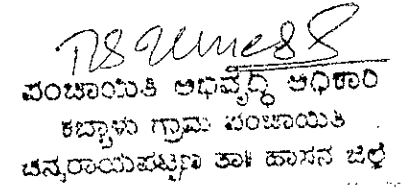 ಪಂಚಾಯಿತಿ ಅಭಿವೃದ್ಧಿ ಅಧಿಕಾರಿ
ಕಬ್ಬಾಳು ಗ್ರಾಮ ಪಂಚಾಯಿತಿ
ಚನ್ನರಾಯಪಟ್ಟಣ ತಾ॥ ಹಾಸನ ಜಿಲ್ಲೆ